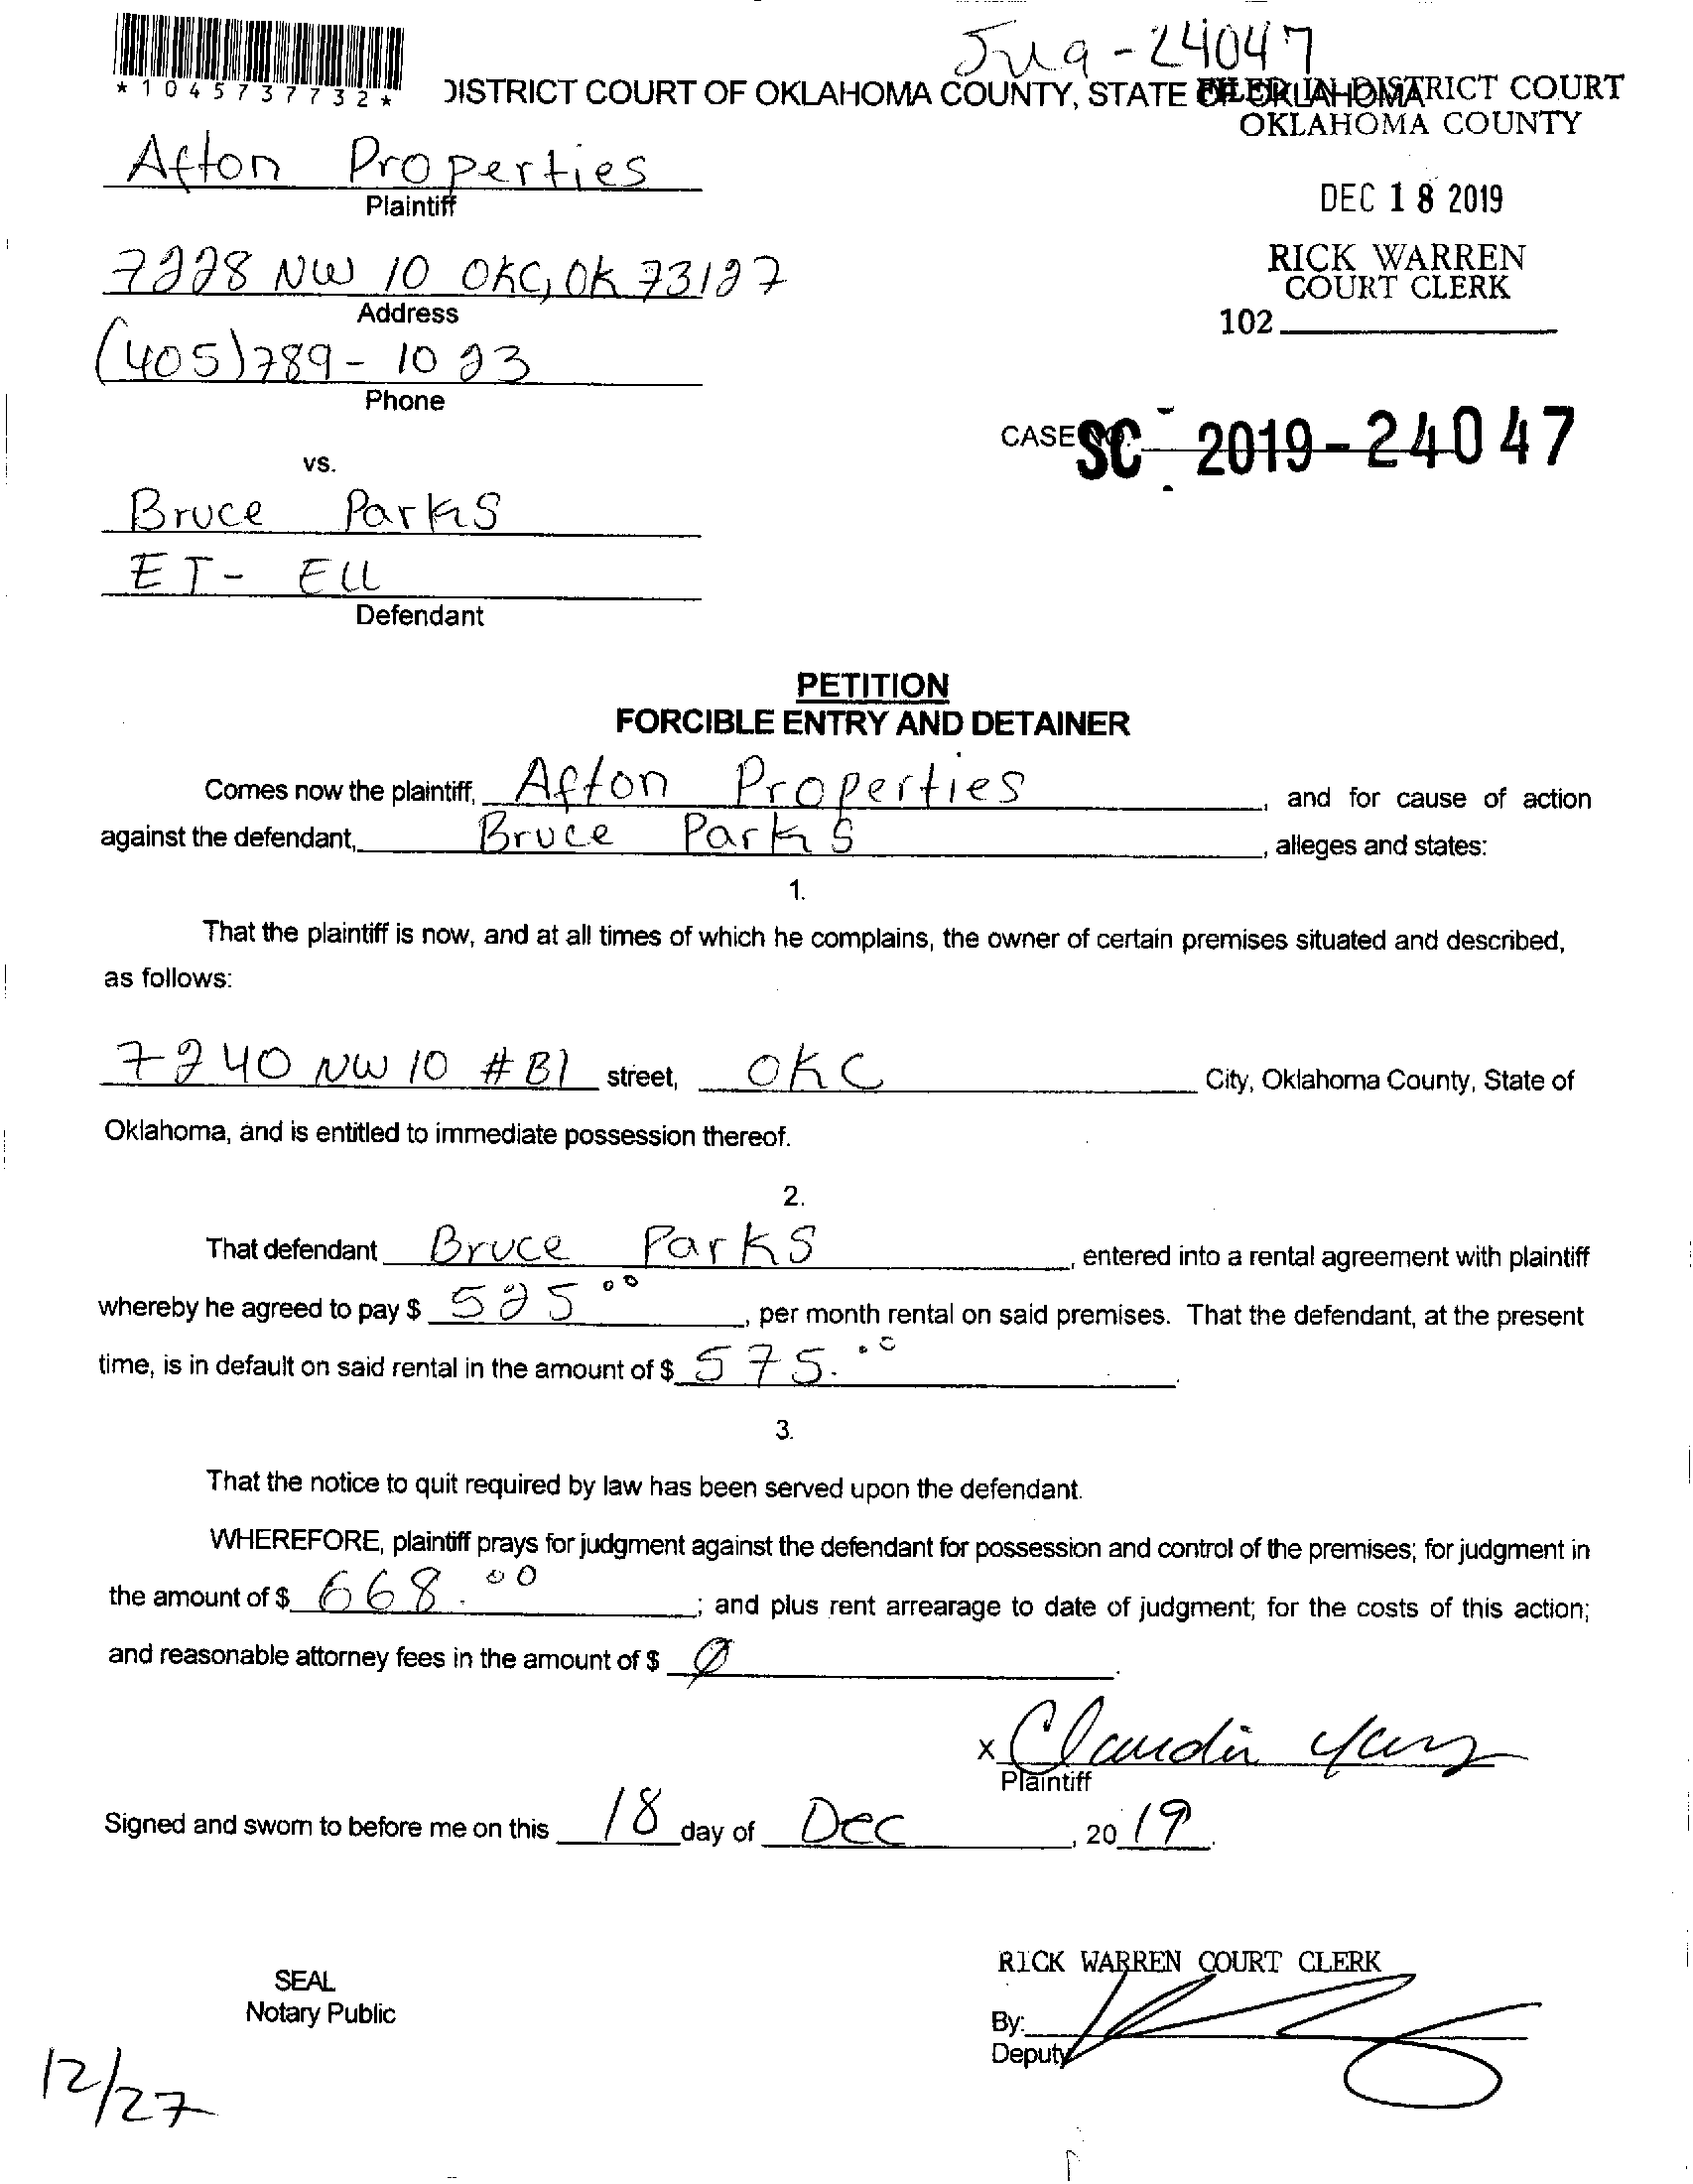 Jug-24047
*1045737732*
DISTRICT COURT OF OKLAHOMA COUNTY, STATE OF OKLAHOMA
FILED IN DISTRICT COURT
OKLAHOMA COUNTY
Afton Properties
Plaintiff
DEC 18 2019
7228 NW 10 OKC, OK 73127
Address
RICK WARREN
COURT CLERK
102
(405)789-1023
Phone
CASE NO. SC-2019-24047
vs.
Bruce Parks
ET-Ell
Defendant
PETITION
FORCIBLE ENTRY AND DETAINER
Comes now the plaintiff, Afton Properties, and for cause of action
against the defendant, Bruce Parks, alleges and states:
1.
That the plaintiff is now, and at all times of which he complains, the owner of certain premises situated and described,
as follows:
7240 NW 10 #B1 street, OKC City, Oklahoma County, State of
Oklahoma, and is entitled to immediate possession thereof.
2.
That defendant Bruce Parks, entered into a rental agreement with plaintiff
whereby he agreed to pay $ 525.00, per month rental on said premises. That the defendant, at the present
time, is in default on said rental in the amount of $ 575.00.
3.
That the notice to quit required by law has been served upon the defendant.
WHEREFORE, plaintiff prays for judgment against the defendant for possession and control of the premises; for judgment in
the amount of $ 668.00; and plus rent arrearage to date of judgment; for the costs of this action;
and reasonable attorney fees in the amount of $ Ø.
x Claudia
Plaintiff
Signed and sworn to before me on this 18 day of Dec, 2019.
RICK WARREN COURT CLERK
SEAL
Notary Public
By:
Deputy
12/27